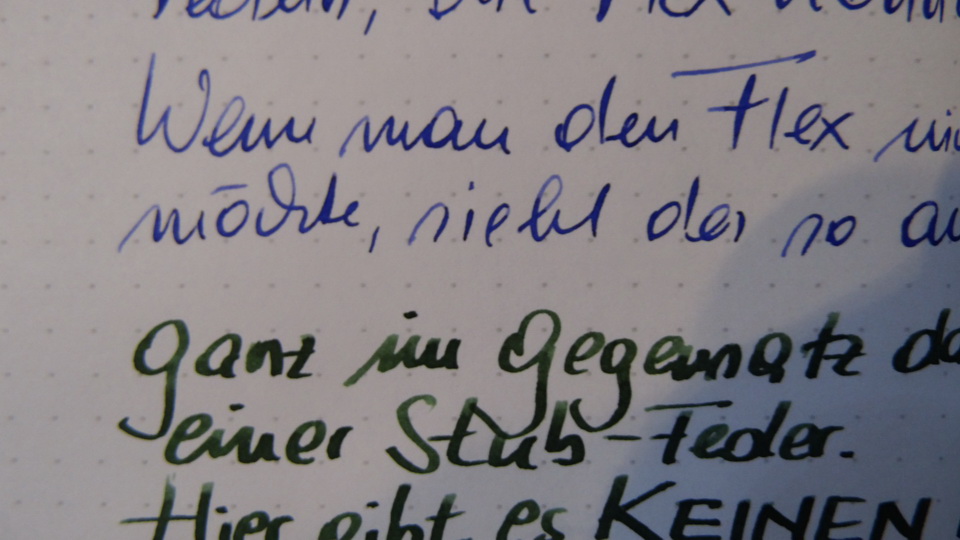 Wenn man den Flex
möchte, sieht das so
Ganz im Gegensatz
einer Stub-Feder.
Hier gibt es KEINEN